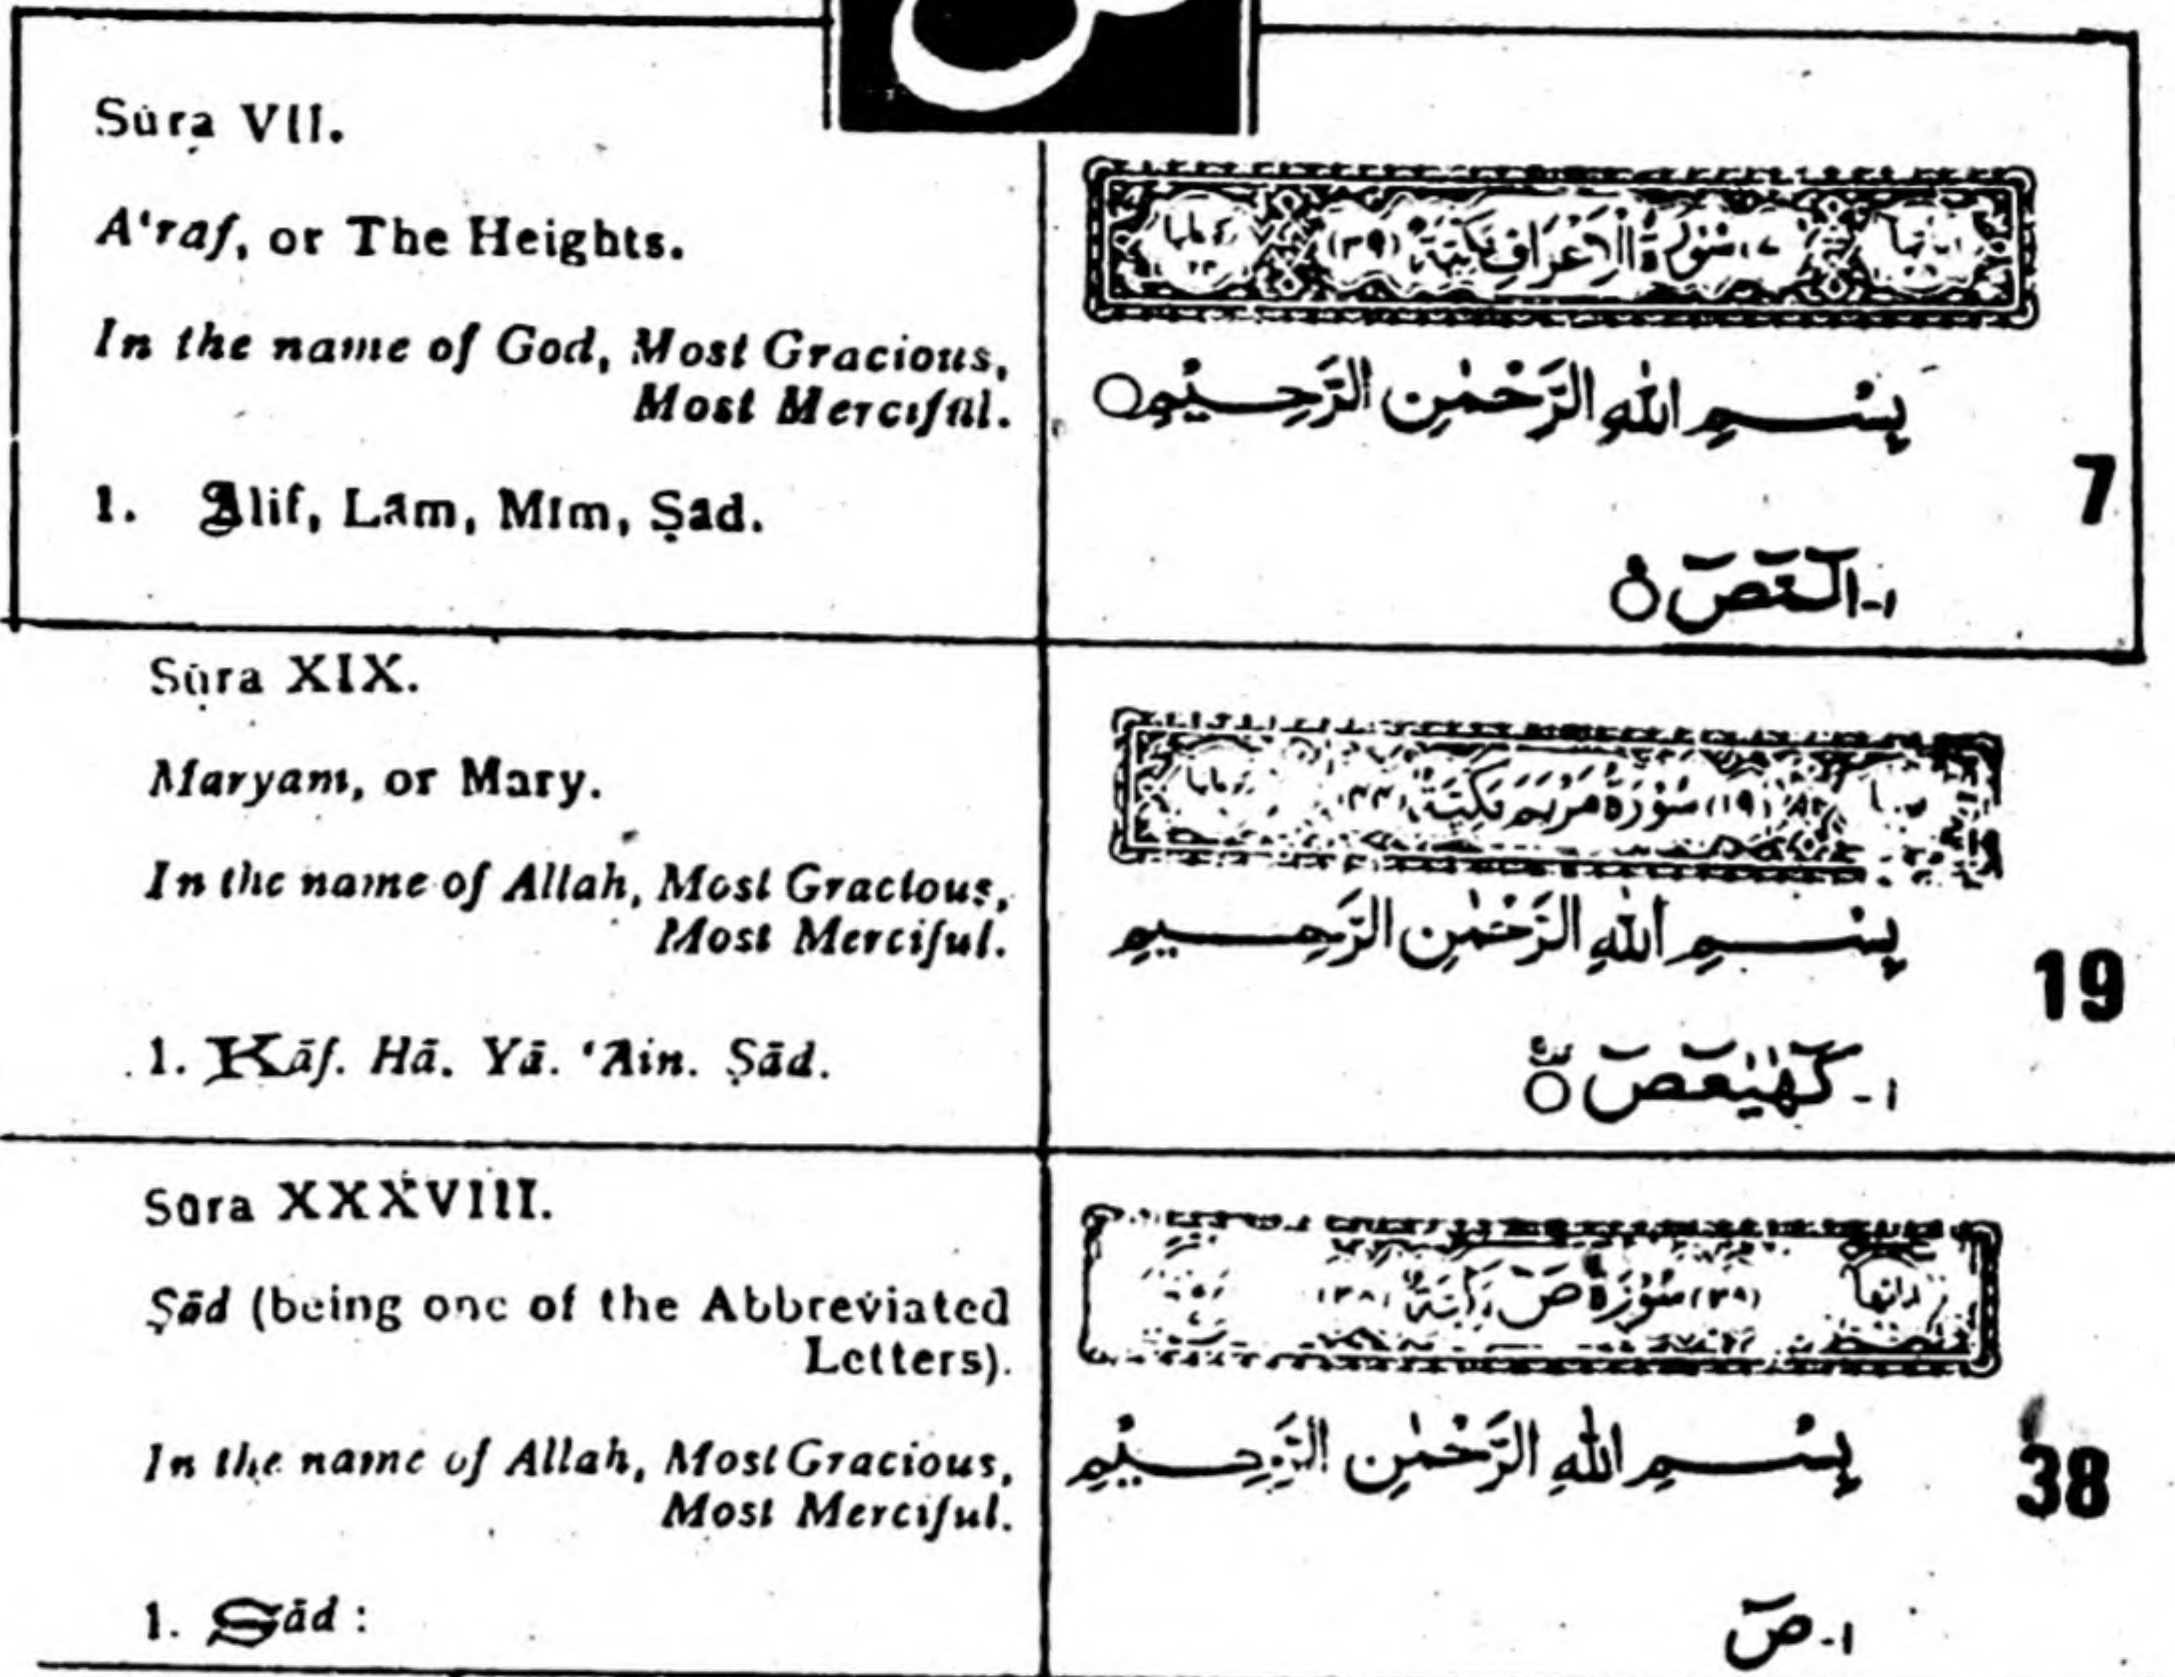 Sūra VII.
A'raf, or The Heights.
In the name of God, Most Gracious,
Most Merciful.
1. Alif, Lām, Mīm, Ṣād.
(٧) سُوْرَةُ الْاَعْرَافِ مَكِّيَّةٌ (٣٩)
بِسْمِ اللهِ الرَّحْمٰنِ الرَّحِيْمِ
7
١- الٓمّٓصٓ
Sūra XIX.
Maryam, or Mary.
In the name of Allah, Most Gracious,
Most Merciful.
1. Kāf. Hā. Yā. 'Ain. Ṣād.
(١٩) سُوْرَةُ مَرْيَمَ مَكِّيَّةٌ (٤٤)
بِسْمِ اللهِ الرَّحْمٰنِ الرَّحِيمِ
19
١- كٓهٰيٰعٓصٓ
Sūra XXXVIII.
Ṣād (being one of the Abbreviated
Letters).
In the name of Allah, Most Gracious,
Most Merciful.
1. Ṣād :
(٣٨) سُوْرَةُ صٓ مَكِّيَّةٌ (٣٨)
بِسْمِ اللهِ الرَّحْمٰنِ الرَّحِيْمِ
38
١- صٓ